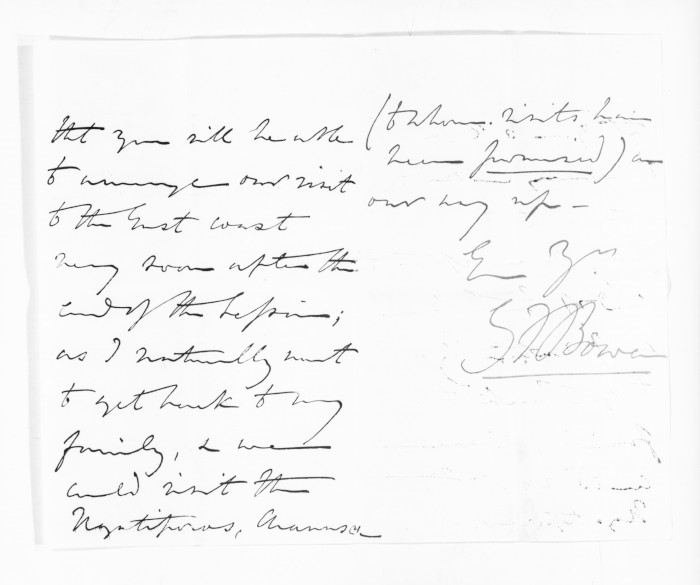 that you will be able
to arrange our visit
to the East coast
very soon after the
end of the Session;
as I naturally want
to get back to my
family, & we
could visit the
Ngatiporou, &
(to whom visits have
been promised) on
our way up –
Ev Yrs
G.F. Bowen